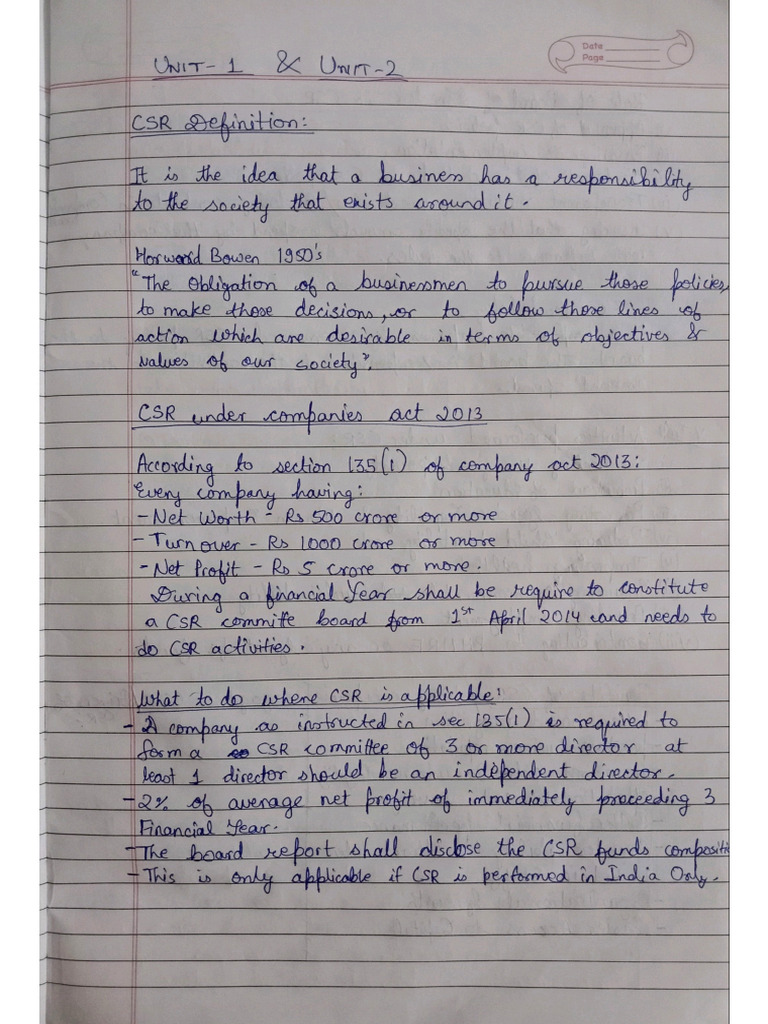 Date
Page
UNIT-1 & UNIT-2
CSR Definition:
It is the idea that a business has a responsibility
to the society that exists around it.
Horward Bowen 1950's
"The Obligation of a businessmen to pursue those policies,
to make those decisions, or to follow those lines of
action which are desirable in terms of objectives &
values of our society".
CSR under companies act 2013
According to section 135(1) of company act 2013:
Every company having:
- Net Worth - Rs 500 crore or more
- Turnover - Rs 1000 crore or more
- Net Profit - Rs 5 crore or more.
During a financial Year shall be require to constitute
a CSR committe board from 1st April 2014 and needs to
do CSR activities.
What to do where CSR is applicable:
- A company as instructed in sec 135(1) is required to
form a CSR committee of 3 or more director at
least 1 director should be an independent director.
- 2% of average net profit of immediately proceeding 3
Financial Year.
- The board report shall disclose the CSR funds compositi
- This is only applicable if CSR is performed in India Only.